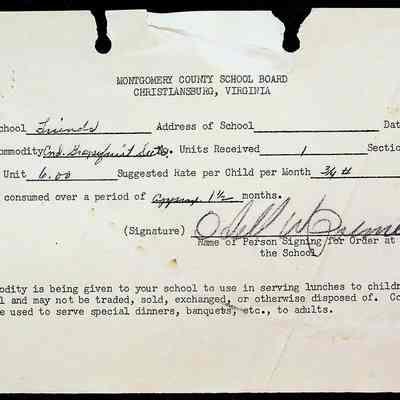 MONTGOMERY COUNTY SCHOOL BOARD
CHRISTIANSBURG, VIRGINIA
chool Friends Address of School Dat
ommodity Cnd. Grapefruit Sects. Units Received 1 Sectio
Unit 6.00 Suggested Rate per Child per Month 3/4 #
consumed over a period of approx 1½ months.
(Signature) Odell W
Name of Person Signing for Order at
the School
odity is being given to your school to use in serving lunches to childr
l and may not be traded, sold, exchanged, or otherwise disposed of. Co
e used to serve special dinners, banquets, etc., to adults.